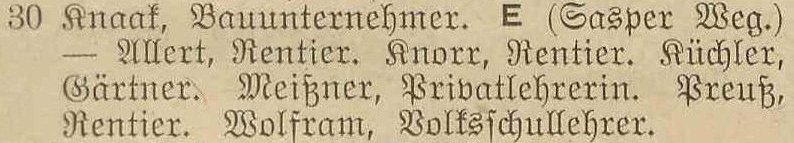 30 Knaak, Bauunternehmer. E (Sasper Weg.)
— Allert, Rentier. Knorr, Rentier. Küchler,
Gärtner. Meißner, Privatlehrerin. Preuß,
Rentier. Wolfram, Volksschullehrer.